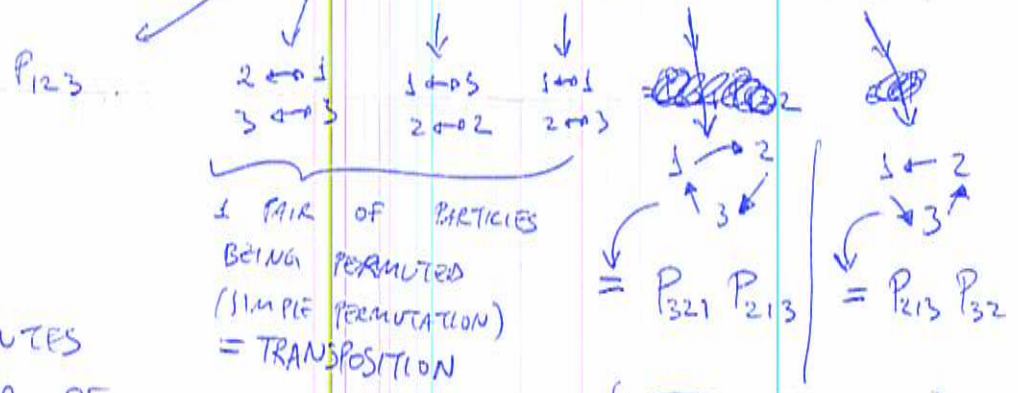 P123
2 ↔ 1
3 ↔ 3
1 ↔ 3
2 ↔ 2
1 ↔ 1
2 ↔ 3
2
1 → 2
3
1 ← 2
3
1 PAIR OF PARTICLES
BEING PERMUTED
(SIMPLE PERMUTATION)
= TRANSPOSITION
= P321 P213
= P213 P32
UTES
OF